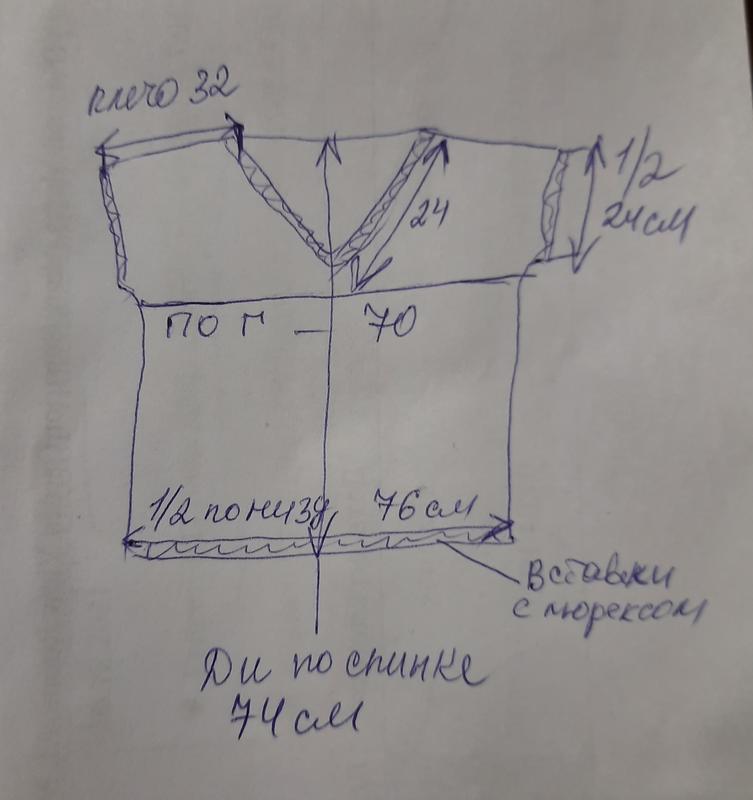 плечо 32
1/2
24 см
24
ПОГ – 70
1/2 по низу 76 см
Вставки
с люрексом
Ди по спинке
74 см